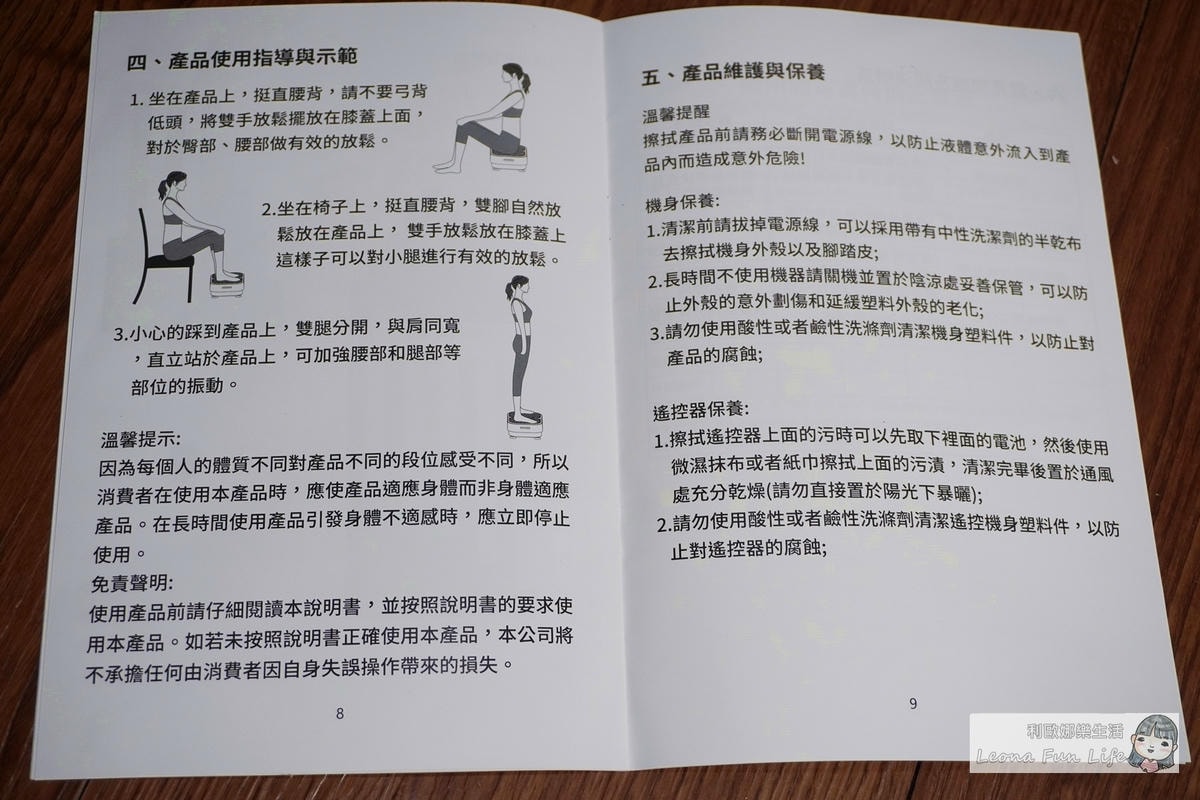 四、產品使用指導與示範
1. 坐在產品上，挺直腰背，請不要弓背
低頭，將雙手放鬆擺放在膝蓋上面，
對於臀部、腰部做有效的放鬆。
2.坐在椅子上，挺直腰背，雙腳自然放
鬆放在產品上， 雙手放鬆放在膝蓋上
這樣子可以對小腿進行有效的放鬆。
3.小心的踩到產品上，雙腿分開，與肩同寬
，直立站於產品上，可加強腰部和腿部等
部位的振動。
溫馨提示:
因為每個人的體質不同對產品不同的段位感受不同，所以
消費者在使用本產品時，應使產品適應身體而非身體適應
產品。在長時間使用產品引發身體不適感時，應立即停止
使用。
免責聲明:
使用產品前請仔細閱讀本說明書，並按照說明書的要求使
用本產品。如若未按照說明書正確使用本產品，本公司將
不承擔任何由消費者因自身失誤操作帶來的損失。
8
五、產品維護與保養
溫馨提醒
擦拭產品前請務必斷開電源線，以防止液體意外流入到產
品內而造成意外危險!
機身保養:
1.清潔前請拔掉電源線，可以採用帶有中性洗潔劑的半乾布
去擦拭機身外殼以及腳踏皮;
2.長時間不使用機器請關機並置於陰涼處妥善保管，可以防
止外殼的意外劃傷和延緩塑料外殼的老化;
3.請勿使用酸性或者鹼性洗滌劑清潔機身塑料件，以防止對
產品的腐蝕;
遙控器保養:
1.擦拭遙控器上面的污時可以先取下裡面的電池，然後使用
微濕抹布或者紙巾擦拭上面的污漬，清潔完畢後置於通風
處充分乾燥(請勿直接置於陽光下暴曬);
2.請勿使用酸性或者鹼性洗滌劑清潔遙控機身塑料件，以防
止對遙控器的腐蝕;
9
利歐娜樂生活
Leona Fun Life